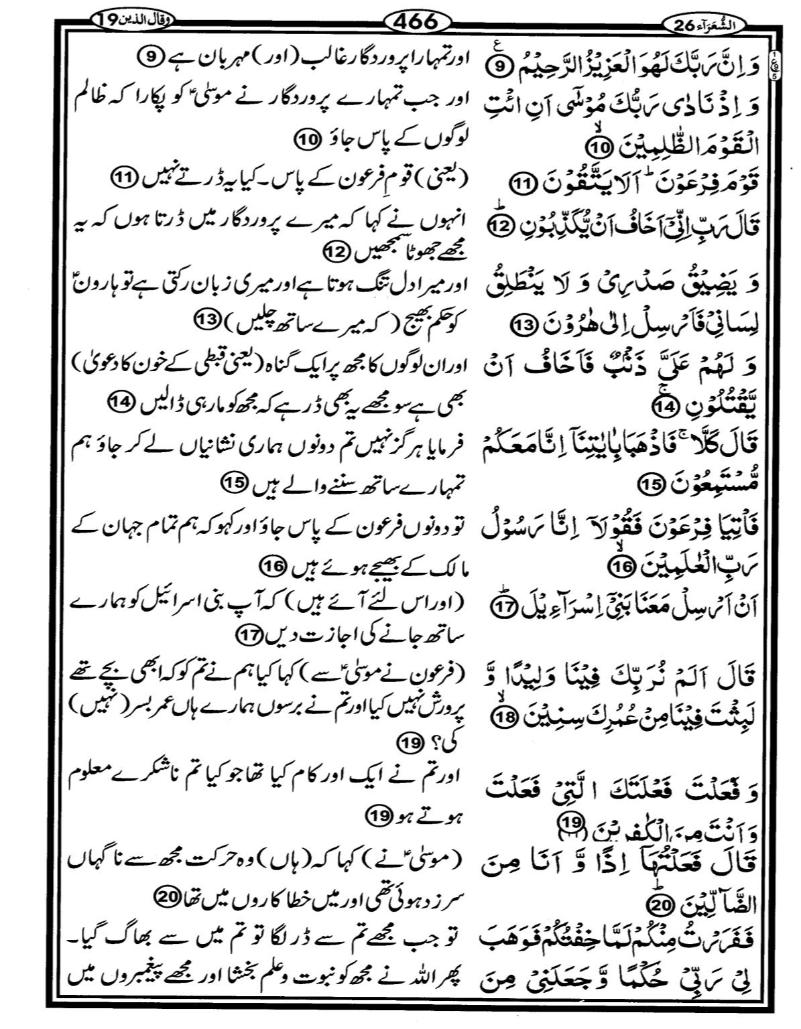 الشُّعَرَآء 26
466
وقال الذین 19
وَ اِنَّ رَبَّكَ لَهُوَ الْعَزِیْزُ الرَّحِیْمُ ⑨
وَ اِذْ نَادٰی رَبُّكَ مُوْسٰۤی اَنِ ائْتِ
الْقَوْمَ الظّٰلِمِیْنَ ۙ⑩
قَوْمَ فِرْعَوْنَ ؕ اَلَا یَتَّقُوْنَ ⑪
قَالَ رَبِّ اِنِّیْۤ اَخَافُ اَنْ یُّكَذِّبُوْنِ ؕ⑫
وَ یَضِیْقُ صَدْرِیْ وَ لَا یَنْطَلِقُ
لِسَانِیْ فَاَرْسِلْ اِلٰی هٰرُوْنَ ⑬
وَ لَهُمْ عَلَیَّ ذَنْۢبٌ فَاَخَافُ اَنْ
یَّقْتُلُوْنِ ۚ⑭
قَالَ كَلَّا ۚ فَاذْهَبَا بِاٰیٰتِنَاۤ اِنَّا مَعَكُمْ
مُّسْتَمِعُوْنَ ⑮
فَاْتِیَا فِرْعَوْنَ فَقُوْلَاۤ اِنَّا رَسُوْلُ
رَبِّ الْعٰلَمِیْنَ ۙ⑯
اَنْ اَرْسِلْ مَعَنَا بَنِیْۤ اِسْرَآءِیْلَ ؕ⑰
قَالَ اَلَمْ نُرَبِّكَ فِیْنَا وَلِیْدًا وَّ
لَبِثْتَ فِیْنَا مِنْ عُمُرِكَ سِنِیْنَ ۙ⑱
وَ فَعَلْتَ فَعْلَتَكَ الَّتِیْ فَعَلْتَ
وَ اَنْتَ مِنَ الْكٰفِرِیْنَ ⑲
قَالَ فَعَلْتُهَاۤ اِذًا وَّ اَنَا مِنَ
الضَّآلِّیْنَ ؕ⑳
فَفَرَرْتُ مِنْكُمْ لَمَّا خِفْتُكُمْ فَوَهَبَ
لِیْ رَبِّیْ حُكْمًا وَّ جَعَلَنِیْ مِنَ
اور تمہارا پروردگار غالب (اور) مہربان ہے ⑨
اور جب تمہارے پروردگار نے موسیٰؑ کو پکارا کہ ظالم
لوگوں کے پاس جاؤ ⑩
(یعنی) قوم فرعون کے پاس۔ کیا یہ ڈرتے نہیں ⑪
انہوں نے کہا کہ میرے پروردگار میں ڈرتا ہوں کہ یہ
مجھے جھوٹا سمجھیں ⑫
اور میرا دل تنگ ہوتا ہے اور میری زبان رکتی ہے تو ہارونؑ
کو حکم بھیج (کہ میرے ساتھ چلیں) ⑬
اور ان لوگوں کا مجھ پر ایک گناہ (یعنی قبطی کے خون کا دعویٰ)
بھی ہے سو مجھے یہ بھی ڈر ہے کہ مجھ کو مار ہی ڈالیں ⑭
فرمایا ہرگز نہیں تم دونوں ہماری نشانیاں لے کر جاؤ ہم
تمہارے ساتھ سننے والے ہیں ⑮
تو دونوں فرعون کے پاس جاؤ اور کہو کہ ہم تمام جہان کے
مالک کے بھیجے ہوئے ہیں ⑯
(اور اس لئے آئے ہیں) کہ آپ بنی اسرائیل کو ہمارے
ساتھ جانے کی اجازت دیں ⑰
(فرعون نے موسیٰؑ سے) کہا کیا ہم نے تم کو کہ ابھی بچے تھے
پرورش نہیں کیا اور تم نے برسوں ہمارے ہاں عمر بسر (نہیں)
کی؟ ⑲
اور تم نے ایک اور کام کیا تھا جو کیا تم ناشکرے معلوم
ہوتے ہو ⑲
(موسیٰؑ نے) کہا کہ (ہاں) وہ حرکت مجھ سے ناگہاں
سرزد ہوئی تھی اور میں خطا کاروں میں تھا ⑳
تو جب مجھے تم سے ڈر لگا تو تم میں سے بھاگ گیا۔
پھر اللہ نے مجھ کو نبوت و علم بخشا اور مجھے پیغمبروں میں